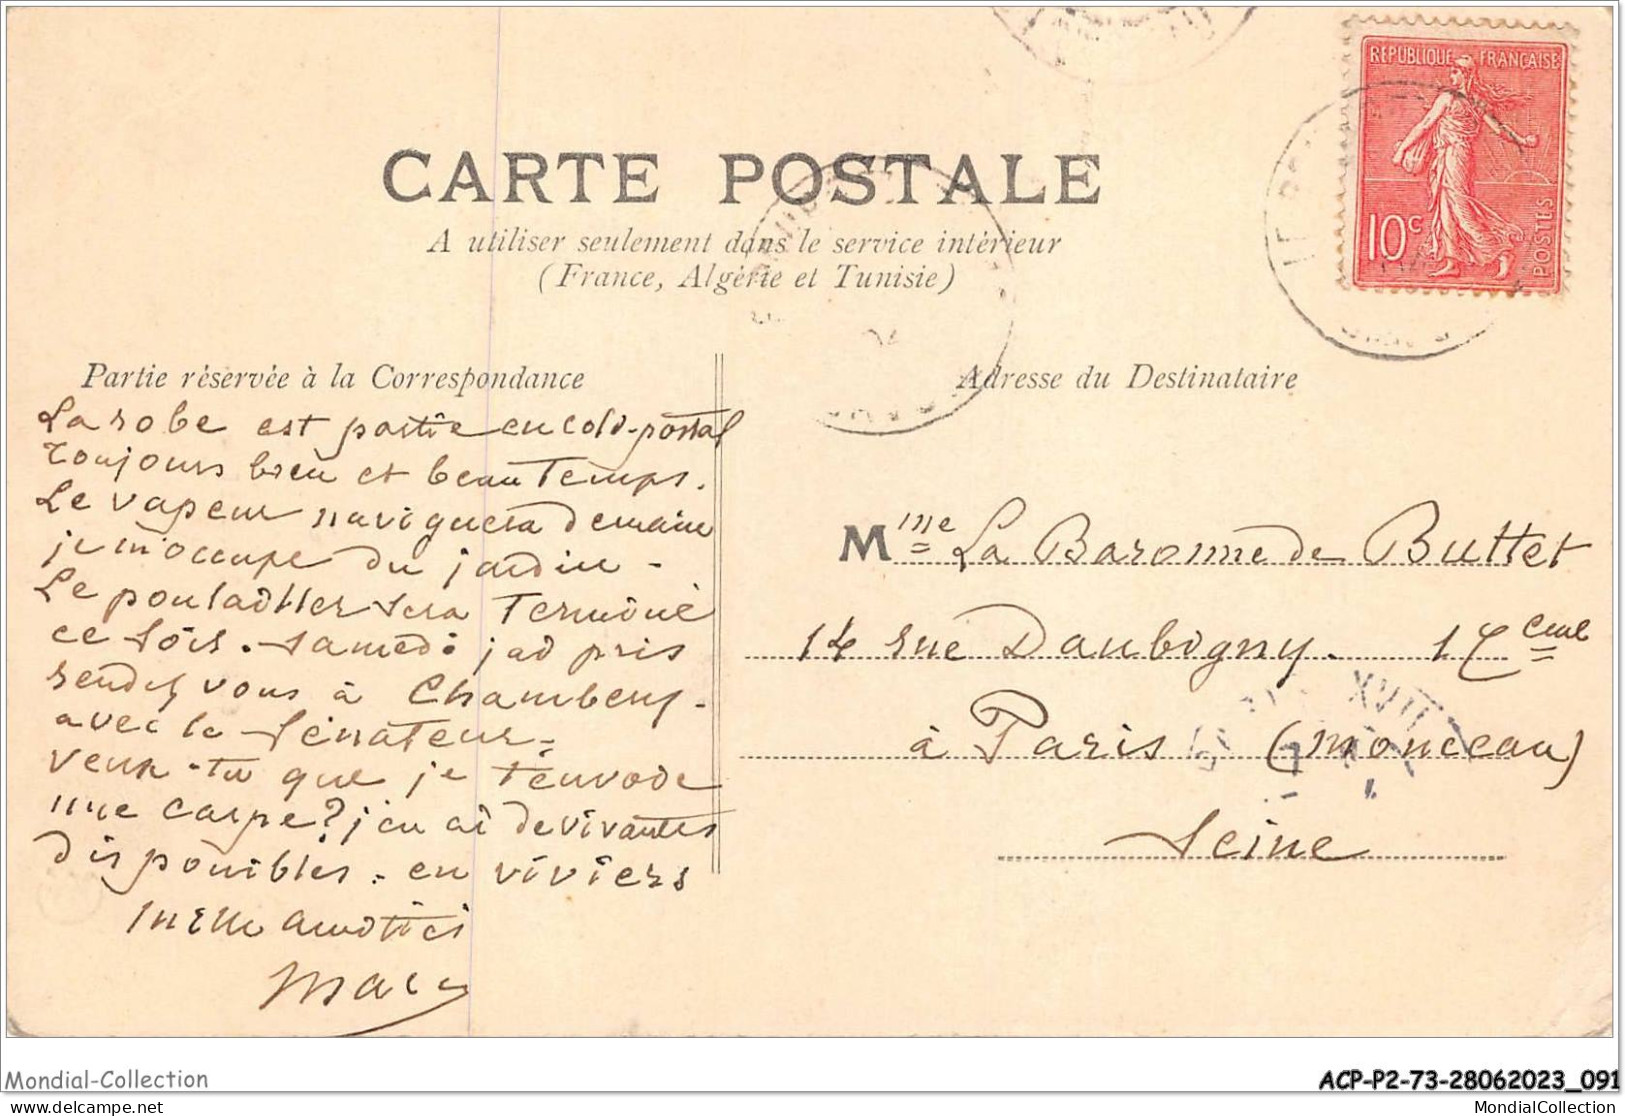 CARTE POSTALE
A utiliser seulement dans le service intérieur
(France, Algérie et Tunisie)
RÉPUBLIQUE FRANÇAISE
10c
POSTES
Partie réservée à la Correspondance
La robe est partie en colis-postal
Toujours bien et beau Temps.
Le vapeur naviguera demain
je m'occupe du jardin -
Le poulailler sera Terminé
ce soir. Samedi j'ai pris
rendez vous à Chambery.
avec le Sénateur.
Veux-tu que je t'envoie
une carpe? j'en ai de vivantes
disponibles. en viviers
mille amitiés
Marc
Adresse du Destinataire
Mme La Baronne de Buttet
14 rue Daubigny. 17eme
à Paris (Monceau)
Seine
XVII
Mondial-Collection
ACP-P2-73-28062023_091
mondial-collection.com
MondialCollection